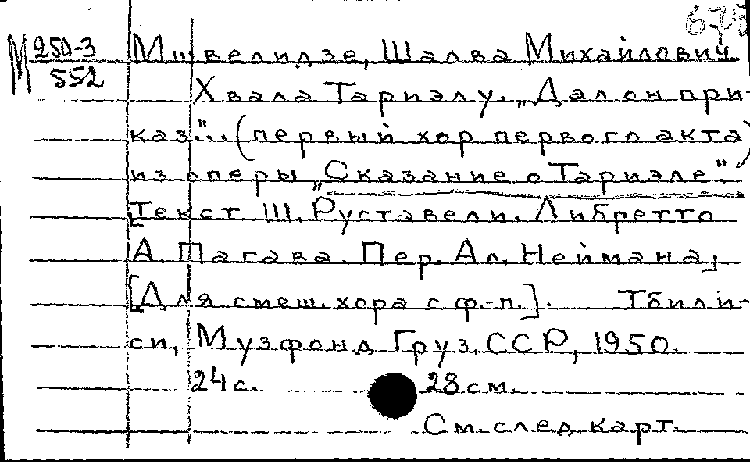 673
М 250-3 Мшвелидзе, Шалва Михайлович
552
Хвала Тариэлу. „Дал он при-
каз"... (первый хор первого акта)
из оперы „Сказание о Тариэле".
[Текст Ш. Руставели. Либретто
А. Пагава. Пер. Ал. Неймана].
[Для смеш. хора с ф.-п.]. Тбили-
си, Музфонд Груз. ССР, 1950.
24 с. 28 см.
См. след. карт.